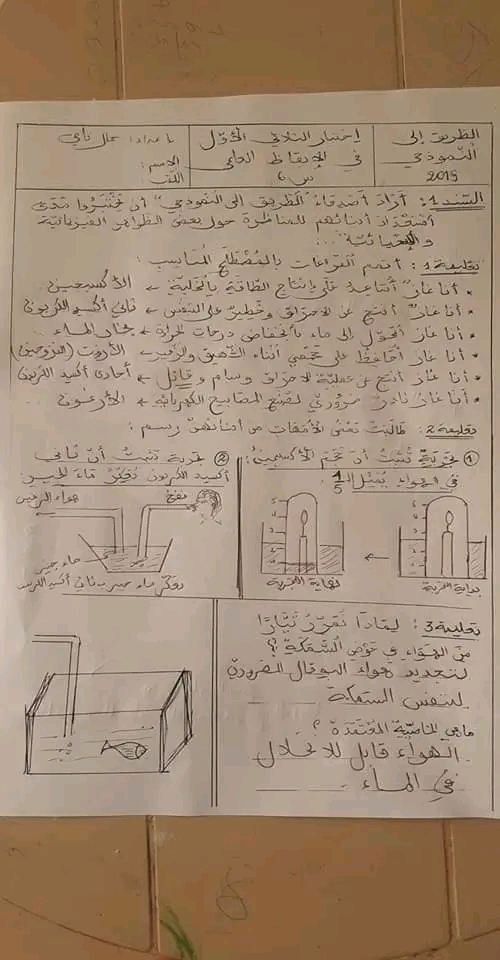 الطريق إلى
النموذجي
2019
اختبار الثلاثي الأول
في الإيقاظ العلمي
س 6
إعداد:
الاسم:
اللقب:
السند 1: أراد أصدقاء "الطريق إلى النموذجي" أن يختبروا مدى
استعداد أبنائهم للمناظرة حول بعض الظواهر الفيزيائية
و
تعليمة 1: أتمم الفراغات بالمصطلح المناسب:
* أنا غاز أساعد على إنتاج الطاقة بالخلية ← الأكسيجين
* أنا غاز أنتج عن الاحتراق وخطير على التنفس ← ثاني أكسيد الكربون
* أنا غاز أتحول إلى ماء بانخفاض درجات الحرارة ← بخار الماء
* أنا غاز أحافظ على حجمي أثناء الشهيق والزفير ← الأزوت (النتروجين)
* أنا غاز أنتج عن عملية الاحتراق وسام وقاتل ← أحادي أكسيد الكربون
* أنا غاز نادر ضروري لصنع المصابيح الكهربائية ← الأرغون
تعليمة 2: طالبت بعض الأمهات من أبنائهن رسم:
① تجربة تثبت أن حجم الأكسجين
في الهواء يمثل 1/5
6
5
4
3
2
1
بداية التجربة
نهاية التجربة
② تجربة تثبت أن ثاني
أكسيد الكربون يعكر ماء الجير
هواء الزفير
نفخ
ماء جير
تعكر ماء جير بثاني أكسيد الكربون
تعليمة 3: لماذا نمرر تيارا
من الهواء في حوض السمكة؟
لتجديد هواء الضروري
لتنفس السمكة
ماهي الخاصية المعتمدة؟
الهواء قابل للانحلال
في الماء